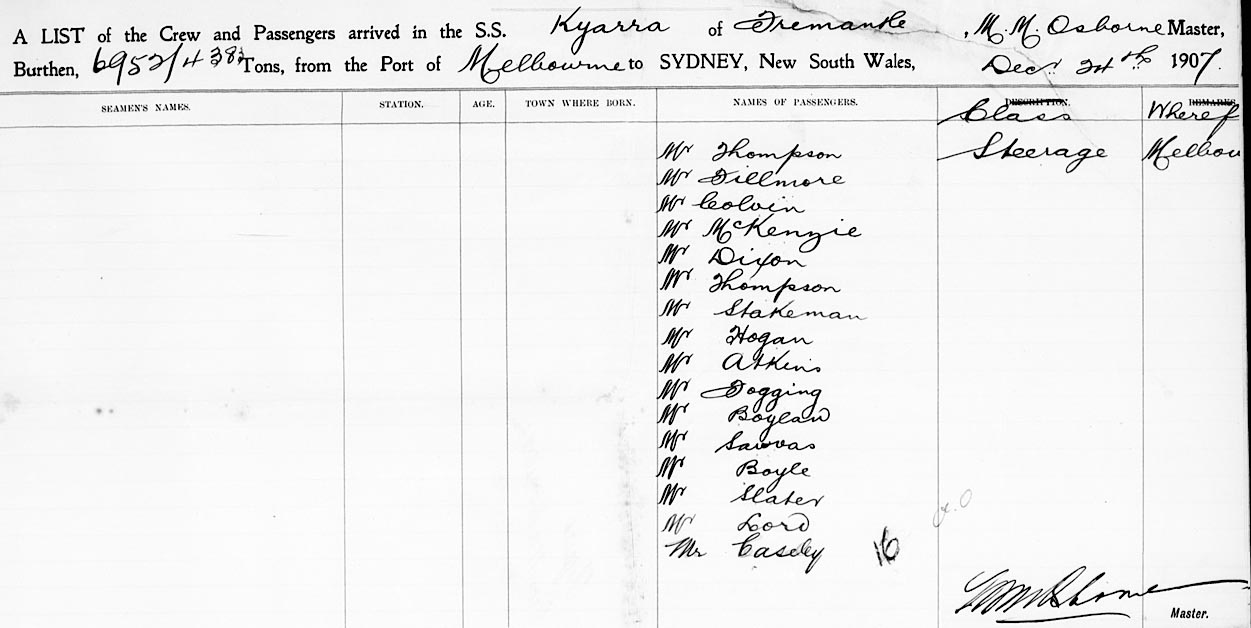 A LIST of the Crew and Passengers arrived in the S.S. Kyarra of Fremantle, M. M. Osborne Master,
Burthen, 6952/4383 Tons, from the Port of Melbourne to SYDNEY, New South Wales, Decr 24th 1907.
SEAMEN'S NAMES. STATION. AGE. TOWN WHERE BORN. NAMES OF PASSENGERS. DESCRIPTION. REMARKS
Class Wheref
Mr Thompson Steerage Melbou
Mr Fillmore
Mr Colvin
Mr McKenzie
Mr Dixon
Mr Thompson
Mr Stakeman
Mr Hogan
Mr Atkins
Mr Fogging
Mr Boylan
Mr Savvas
Mr Boyle
Mr Slater
Mr Lord
Mr Casely 16
Master.